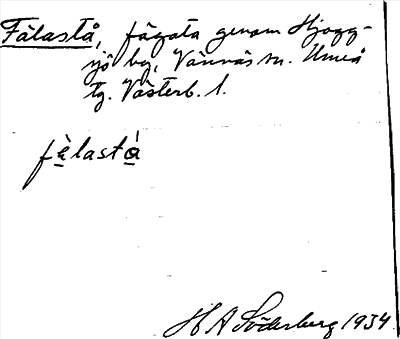 Fälastå, fägata genom Hjogg-
sjö by, Vännäs sn. Umeå
tg. Västerb. l.
fè̱lastá̱
H A Söderberg 1934